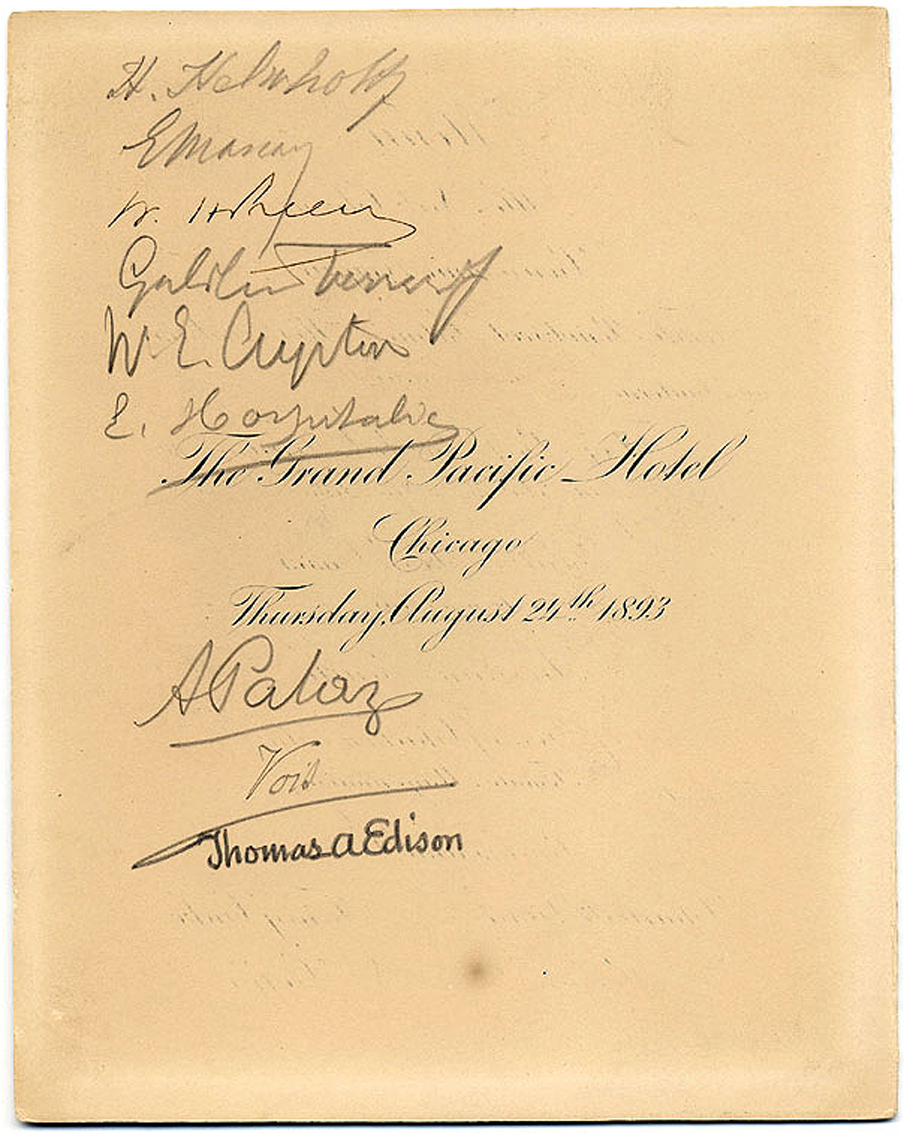 H. Helmholtz
E Mascart
W. H Preece
Galileo Ferraris
W. E. Ayrton
E. Hospitalier
The Grand Pacific Hotel
Chicago
Thursday, August 24th 1893
A Palaz
Voit
Thomas A Edison